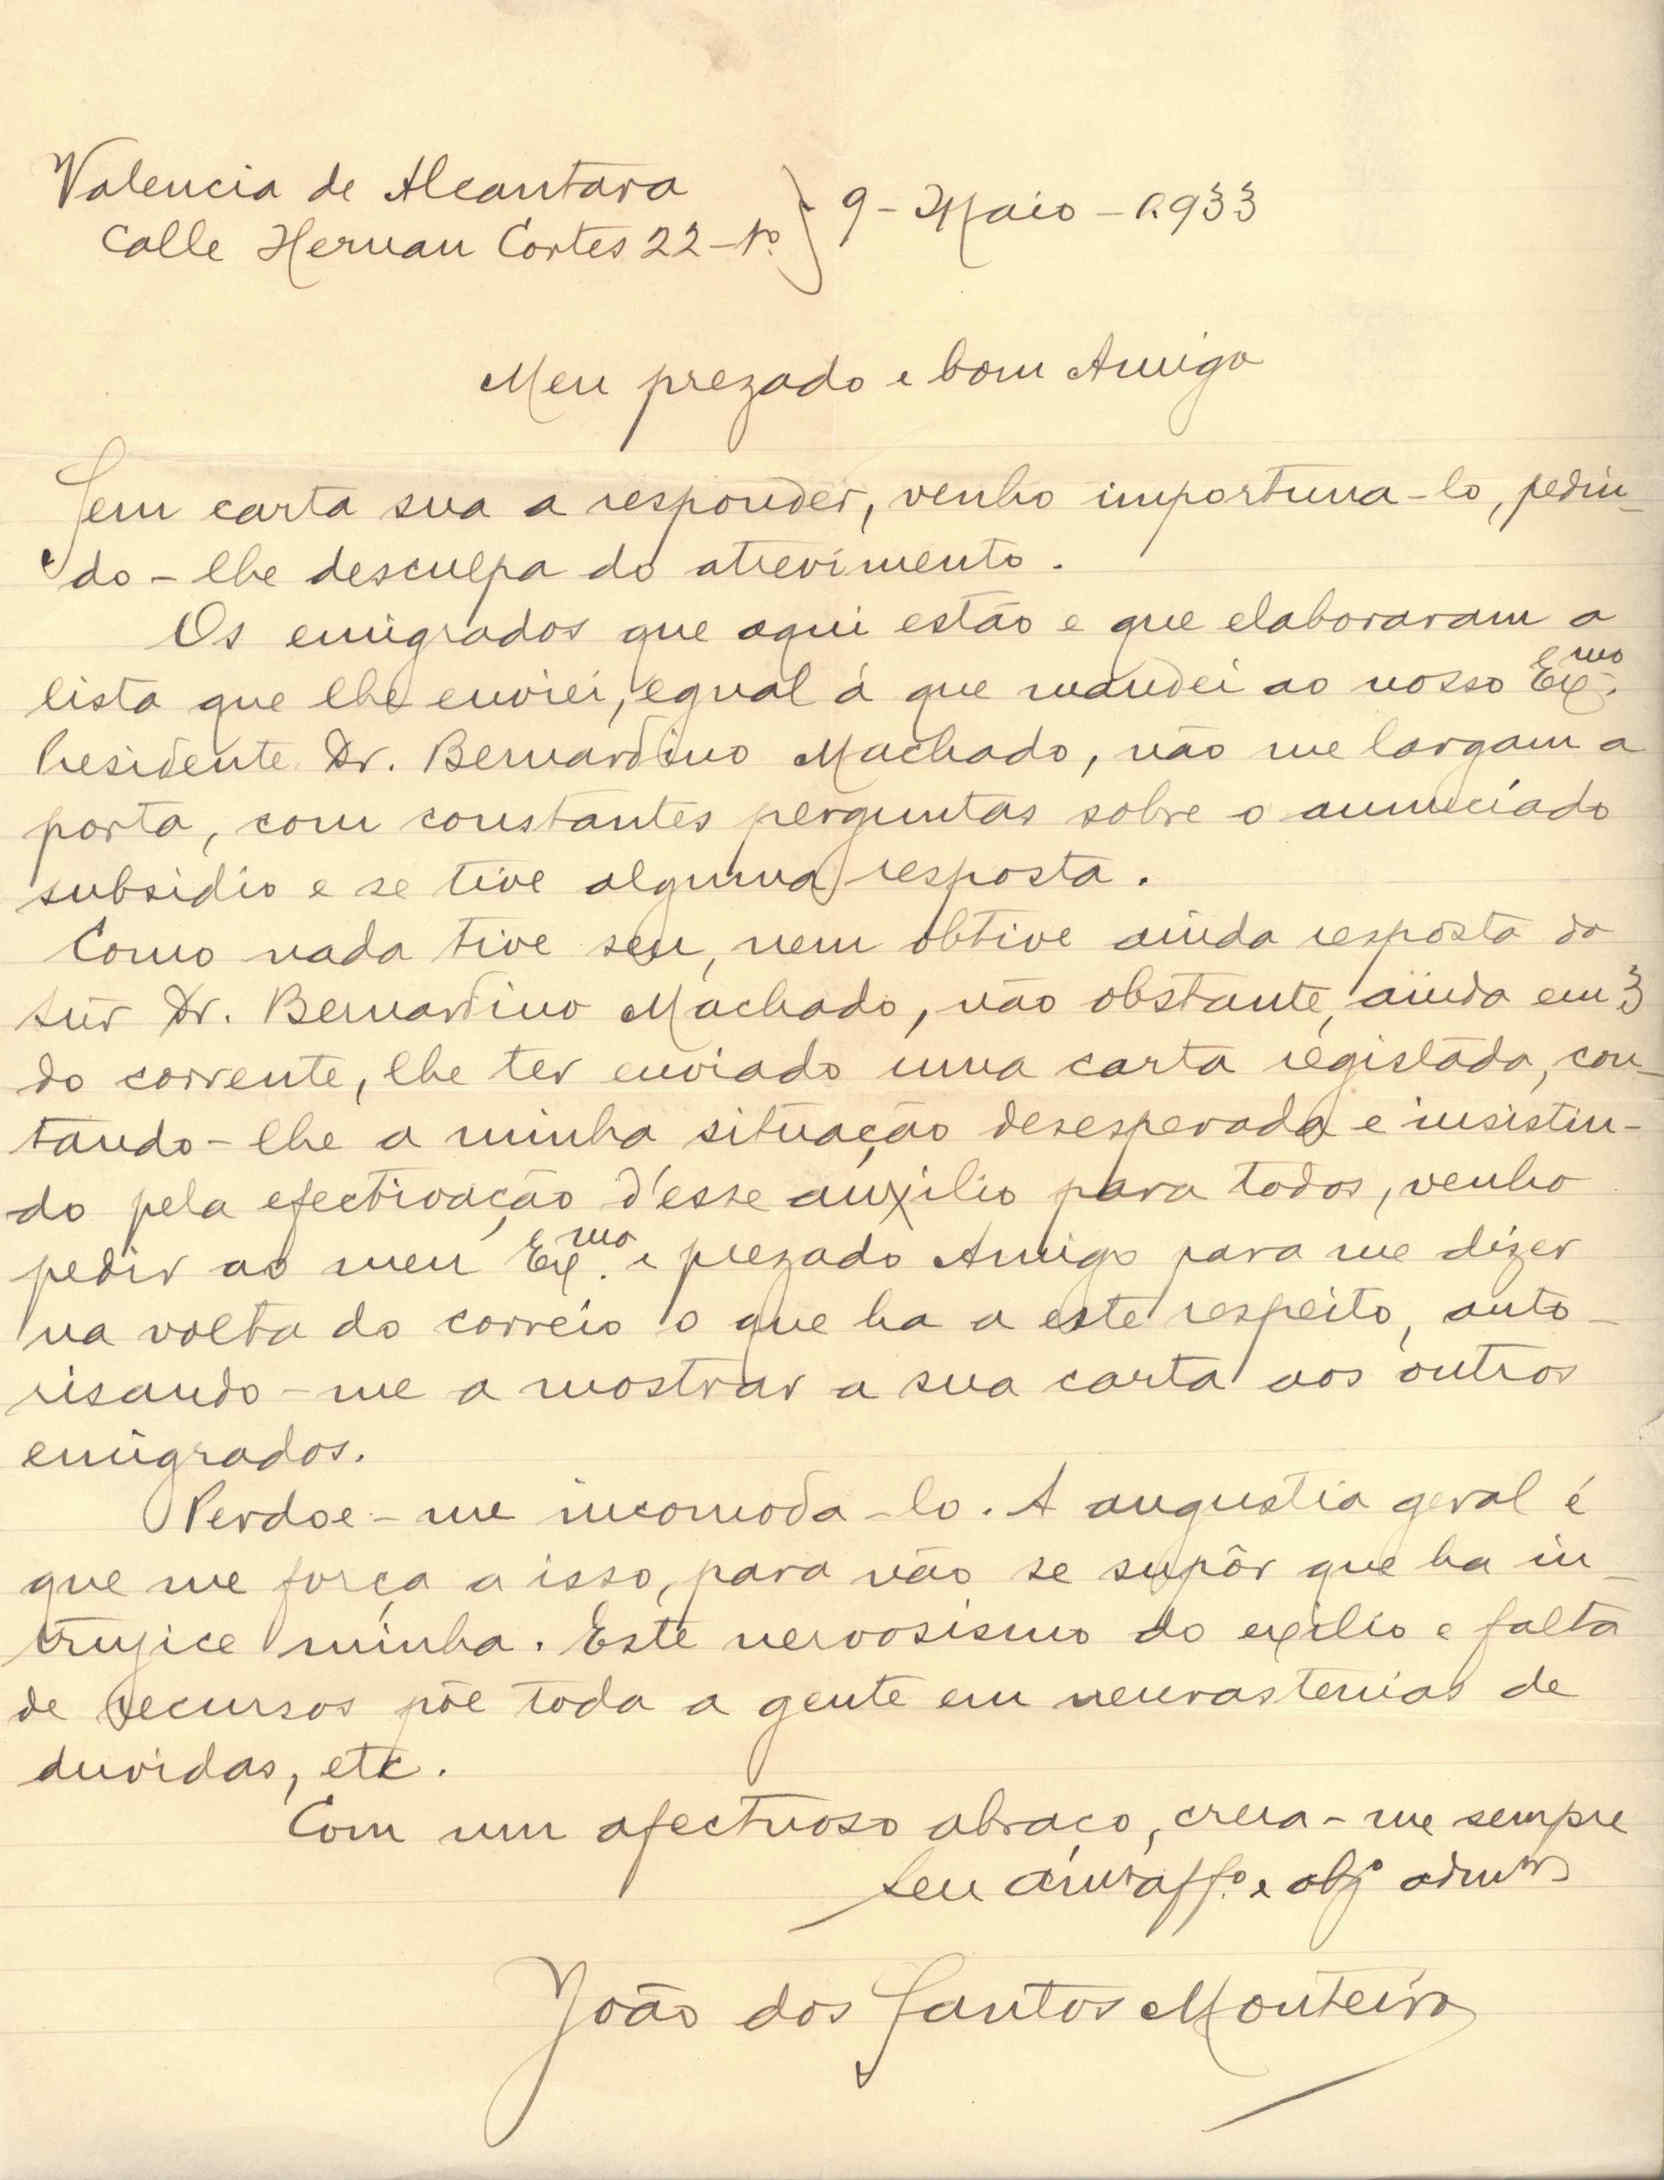 Valencia de Alcantara
Calle Hernan Cortes 22-1º } 9-Maio-1933
Meu prezado e bom Amigo
Sem carta sua a responder, venho importuna-lo, pedin-
do-lhe desculpa do atrevimento.
Os emigrados que aqui estão e que elaboraram a
lista que lhe enviei, egual á que mandei ao nosso Exmo.
Presidente Dr. Bernardino Machado, não me largam a
porta, com constantes perguntas sobre o anunciado
subsidio e se tive alguma resposta.
Como nada tive seu, nem obtive ainda resposta do
Snr Dr. Bernardino Machado, não obstante, ainda em 3
do corrente, lhe ter enviado uma carta registada, con-
tando-lhe a minha situação desesperada e insistin-
do pela efectivação d'esse auxilio para todos, venho
pedir ao meu Exmo. e prezado Amigo para me dizer
na volta do correio o que ha a este respeito, auto-
risando-me a mostrar a sua carta aos outros
emigrados.
Perdoe-me incomoda-lo. A angustia geral é
que me força a isso, para não se supôr que ha in-
trujice minha. Este nervosismo do exilio e falta
de recursos põe toda a gente em neurastenias de
duvidas, etc.
Com um afectuoso abraço, creia-me sempre
Seu affº. e obgº
João dos Santos Monteiro